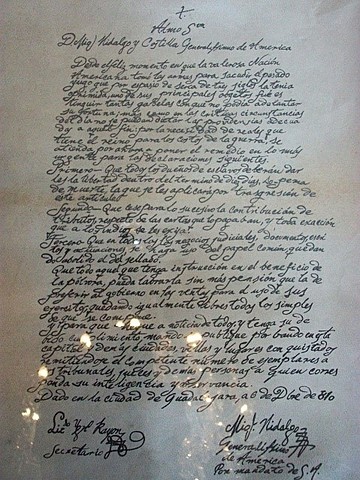 +
Almo Sor
D. Migl Hidalgo y Costilla Generalísimo de América
Desde el felis momento en que la valerosa Nación
América na tomó las armas para sacudir el pesado
yugo que por espacio de serca de tres siglos la tenía
oprimida, uno de sus principales objetos fue ex
tinguir tantas gabelas con que no podía adelantar
su fortuna; mas como en las críticas circunstancias
del día no se pueden dictar las providencias adecua
da a aquel fin; por la necesidad de reales que
tiene el reino para los costos de la guerra, se
atienda por ahora a poner el remedio en lo más
urgente para las declaraciones siguientes.
Primera - Que todos los dueños de esclavos deberán dar
les la libertad dentro el término de diez días, so pena
de muerte, la que se les aplicará por trasgresión de
este artículo.
Segunda - Que cese para lo sucesivo la contribución de
tributos, respeto de las castas que lo pagaban, y toda exacción
que a los indios se les exija.
Tercero - Que en todos los negocios judiciales, documentos, escri
turas y actuaciones se haga uso del papel común, quedan
do abolido el del sellado.
Que todo aquel que tenga instrucción en el beneficio de
la pólvora, pueda labrarla sin más pensión que la de
preferir al gobierno en las ventas para el uso de sus
exercitos, quedando igualmente libres todos los simples
de que se constituye.
Y para que llegue a noticia de todos y tenga su de
bido cumplimiento, mando se publique por bando en esta
capital y demás ciudades, villas y lugares conquistados
remitiéndose el competente número de ejemplares a
los tribunales, jueces y demás personas a quien corres
ponda su inteligencia y observancia.
Dado en la ciudad de Guadalajara, a 6 de Dbre de 810
Licdo Ygno Rayon Migl Hidalgo
Secretario Generalísimo
de América
Por mandato de S.A.